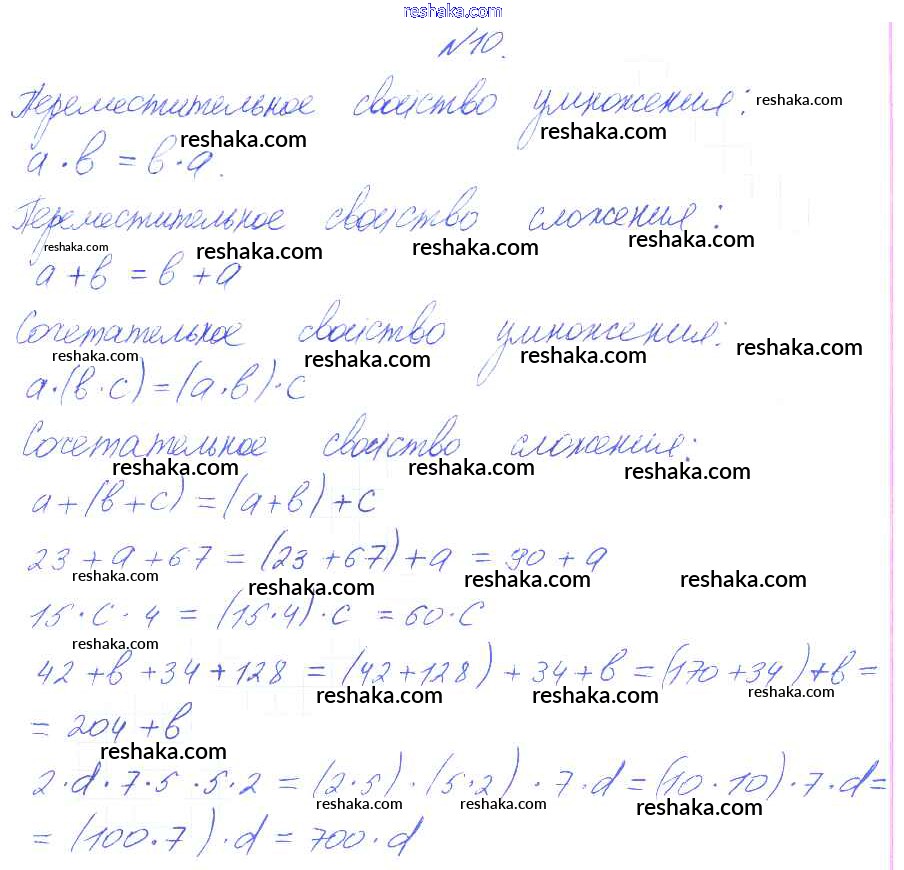 reshaka.com
№10.
Переместительное свойство умножения: reshaka.com
reshaka.com reshaka.com
a·b = b·a.
Переместительное свойство сложения:
reshaka.com reshaka.com reshaka.com reshaka.com
a+b = b+a
Сочетательное свойство умножения:
reshaka.com reshaka.com reshaka.com reshaka.com
a·(b·c)=(a·b)·c
Сочетательное свойство сложения:
reshaka.com reshaka.com reshaka.com
a+(b+c)=(a+b)+c
23+a+67=(23+67)+a=90+a
reshaka.com reshaka.com reshaka.com reshaka.com
15·c·4=(15·4)·c=60·c
reshaka.com
42+b+34+128=(42+128)+34+b=(170+34)+b=
reshaka.com reshaka.com reshaka.com
=204+b
reshaka.com
2·d·7·5·5·2=(2·5)·(5·2)·7·d=(10·10)·7·d=
reshaka.com reshaka.com reshaka.com
=(100·7)·d=700·d